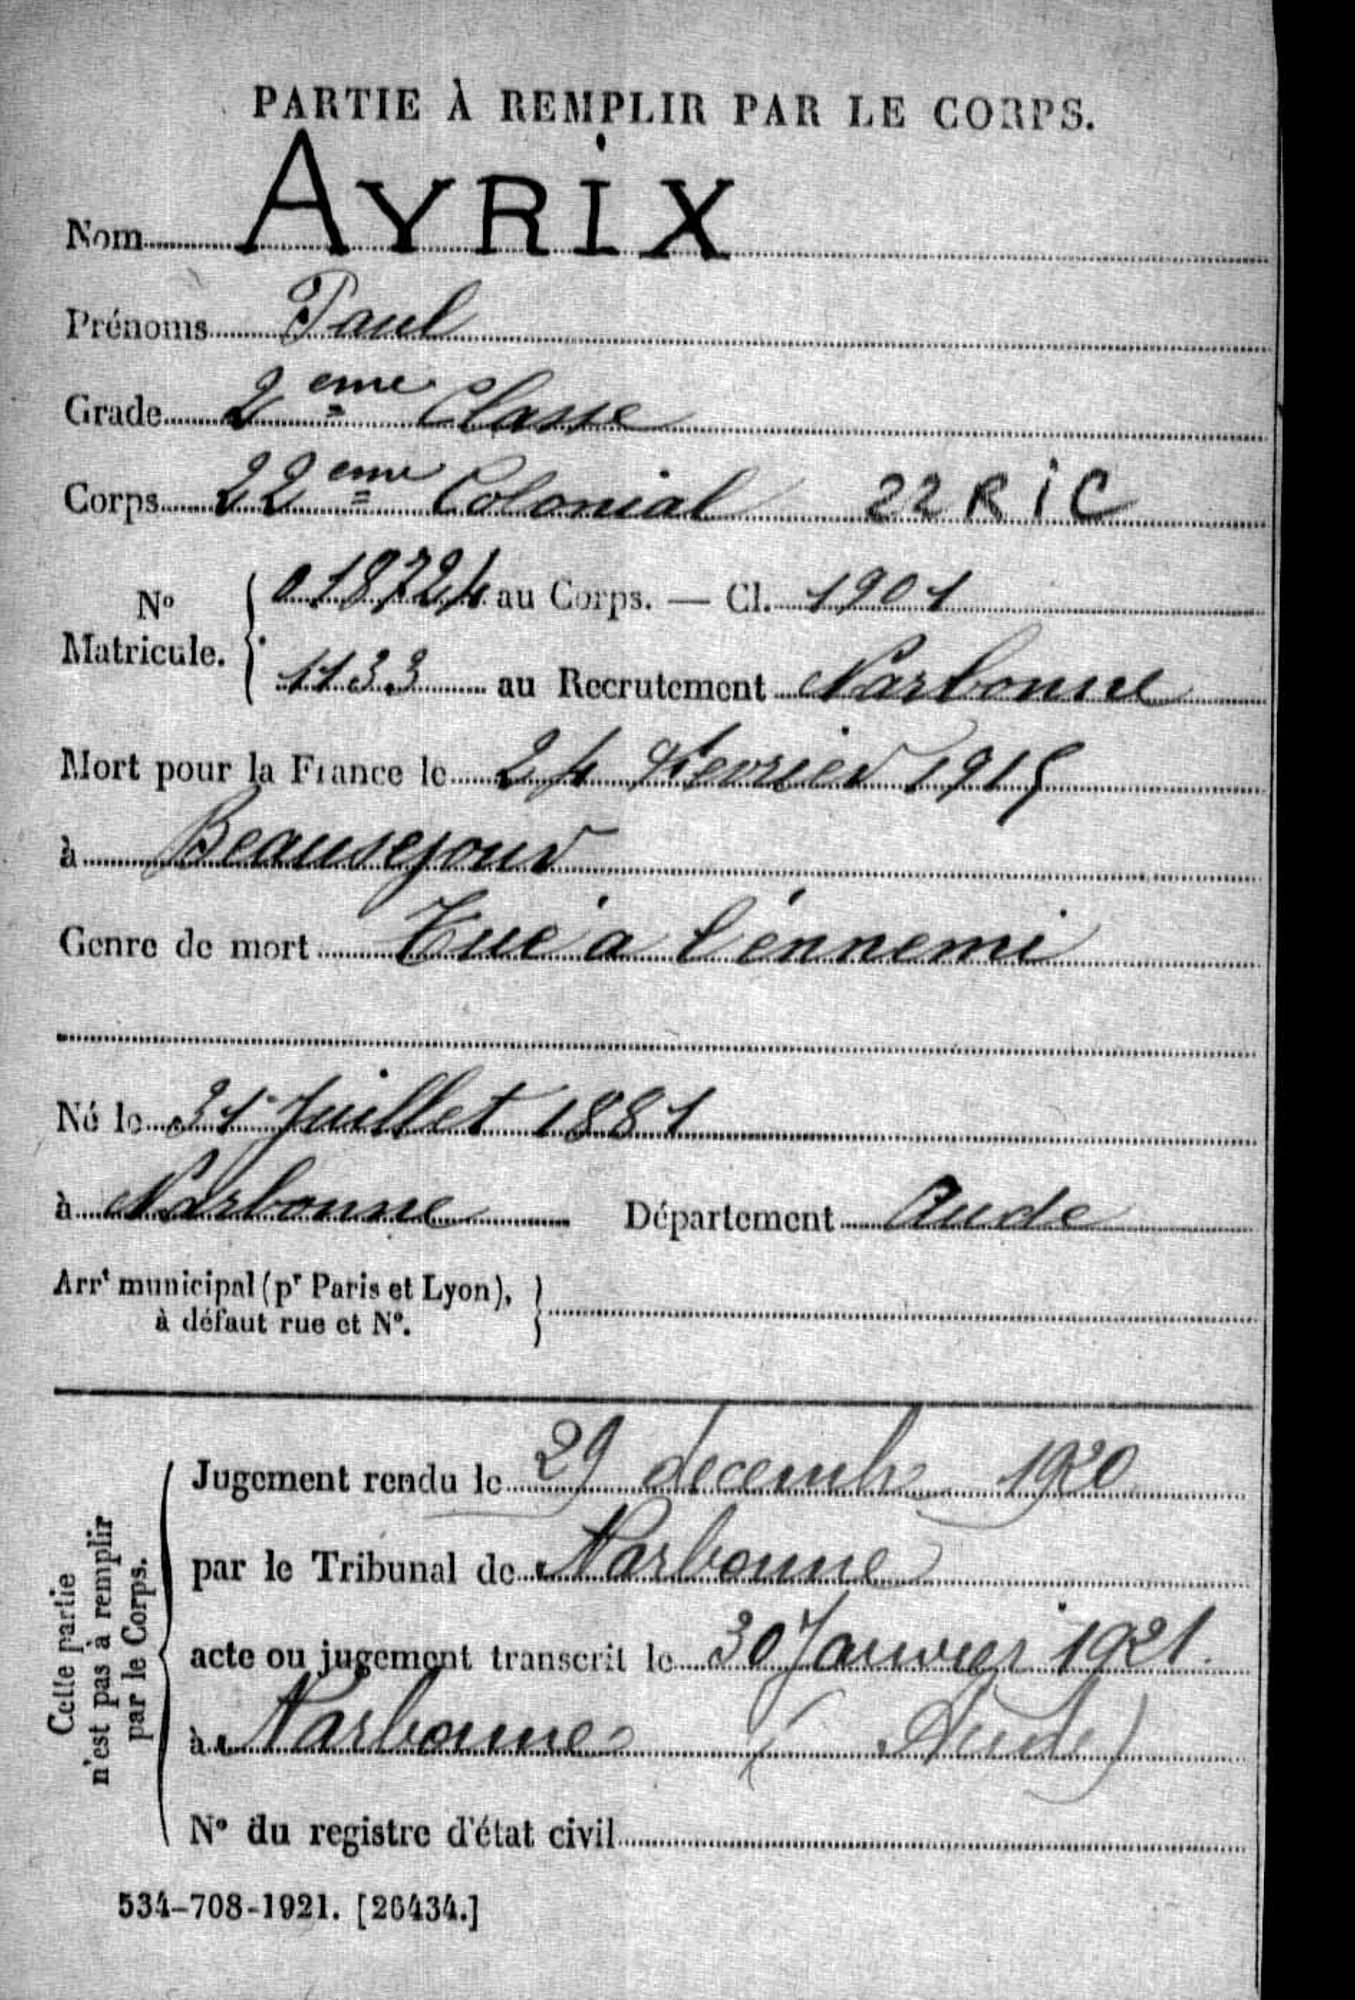 PARTIE À REMPLIR PAR LE CORPS.
Nom AYRIX
Prénoms Paul
Grade 2eme Classe
Corps 22eme Colonial 22 RIC
No Matricule. 018724 au Corps. — Cl. 1901
1133 au Recrutement Narbonne
Mort pour la France le 24 Fevrier 1915
à Beausejour
Genre de mort Tué a l'énnemi
Né le 31 Juillet 1881
à Narbonne Département Aude
Arrt municipal (pr Paris et Lyon),
à défaut rue et No.
Cette partie
n'est pas à remplir
par le Corps.
Jugement rendu le 29 decembre 1920
par le Tribunal de Narbonne
acte ou jugement transcrit le 30 Janvier 1921.
à Narbonne (Aude)
No du registre d'état civil
534-708-1921. [26434.]